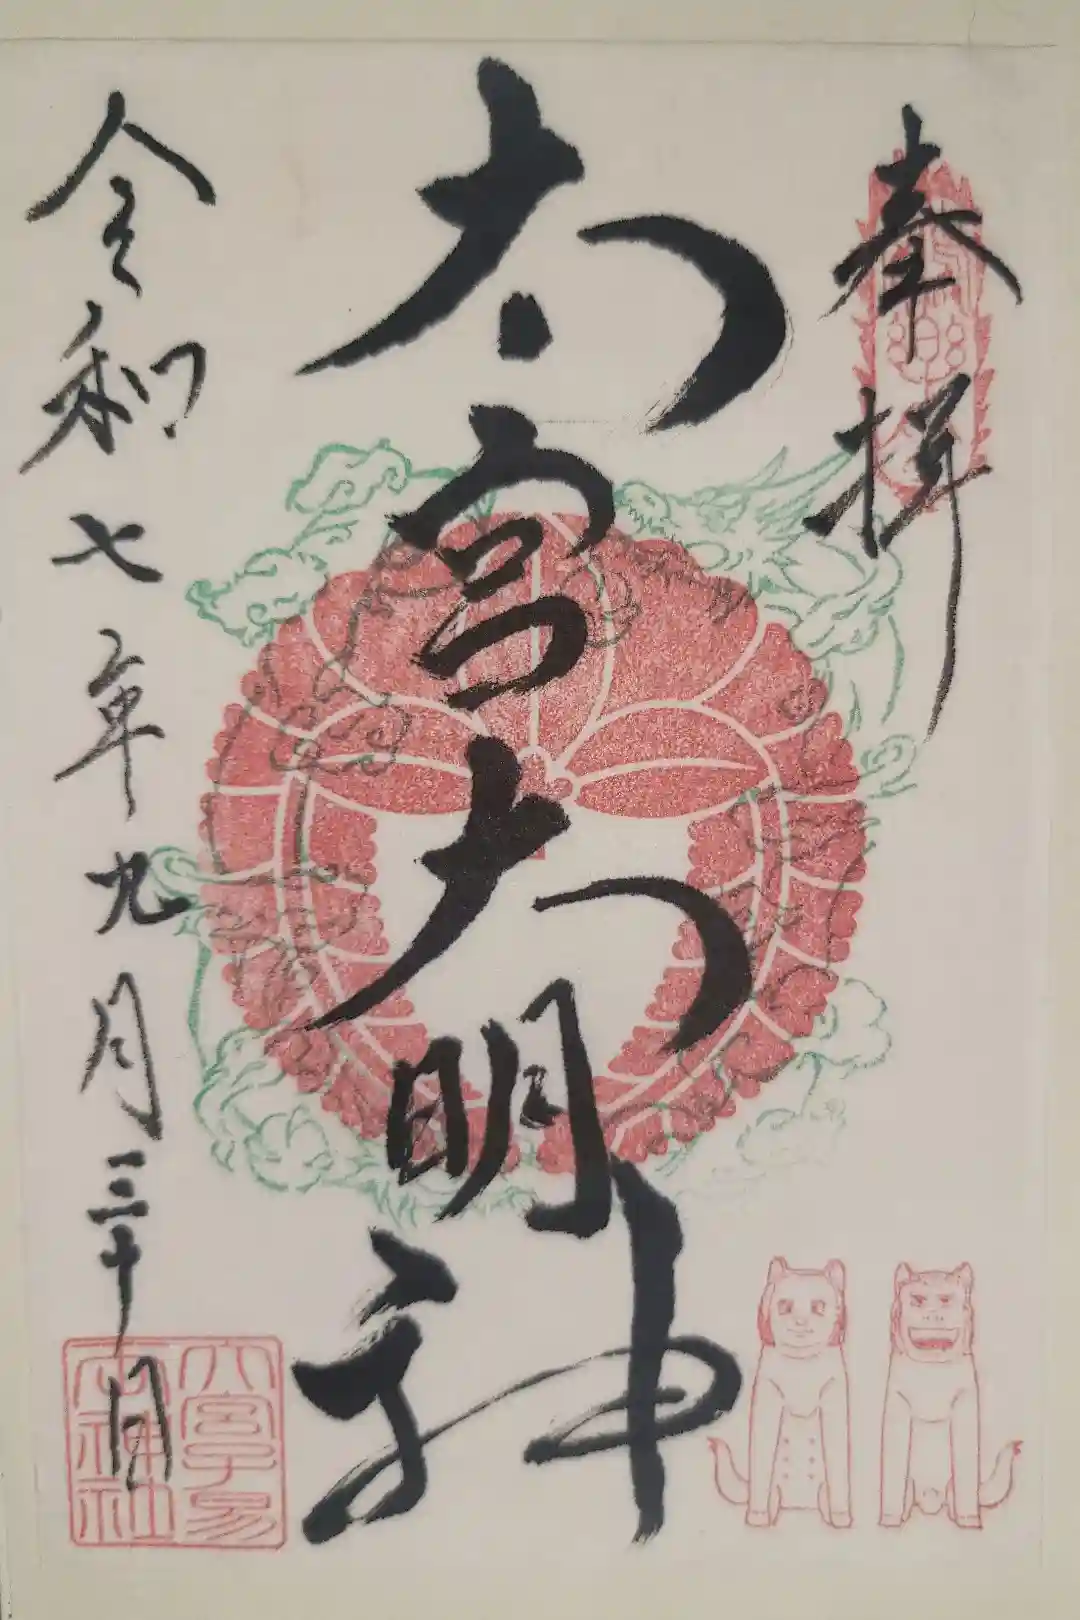 奉拝
太宮大明神
令和七年九月三十日
大宮子易
両神社